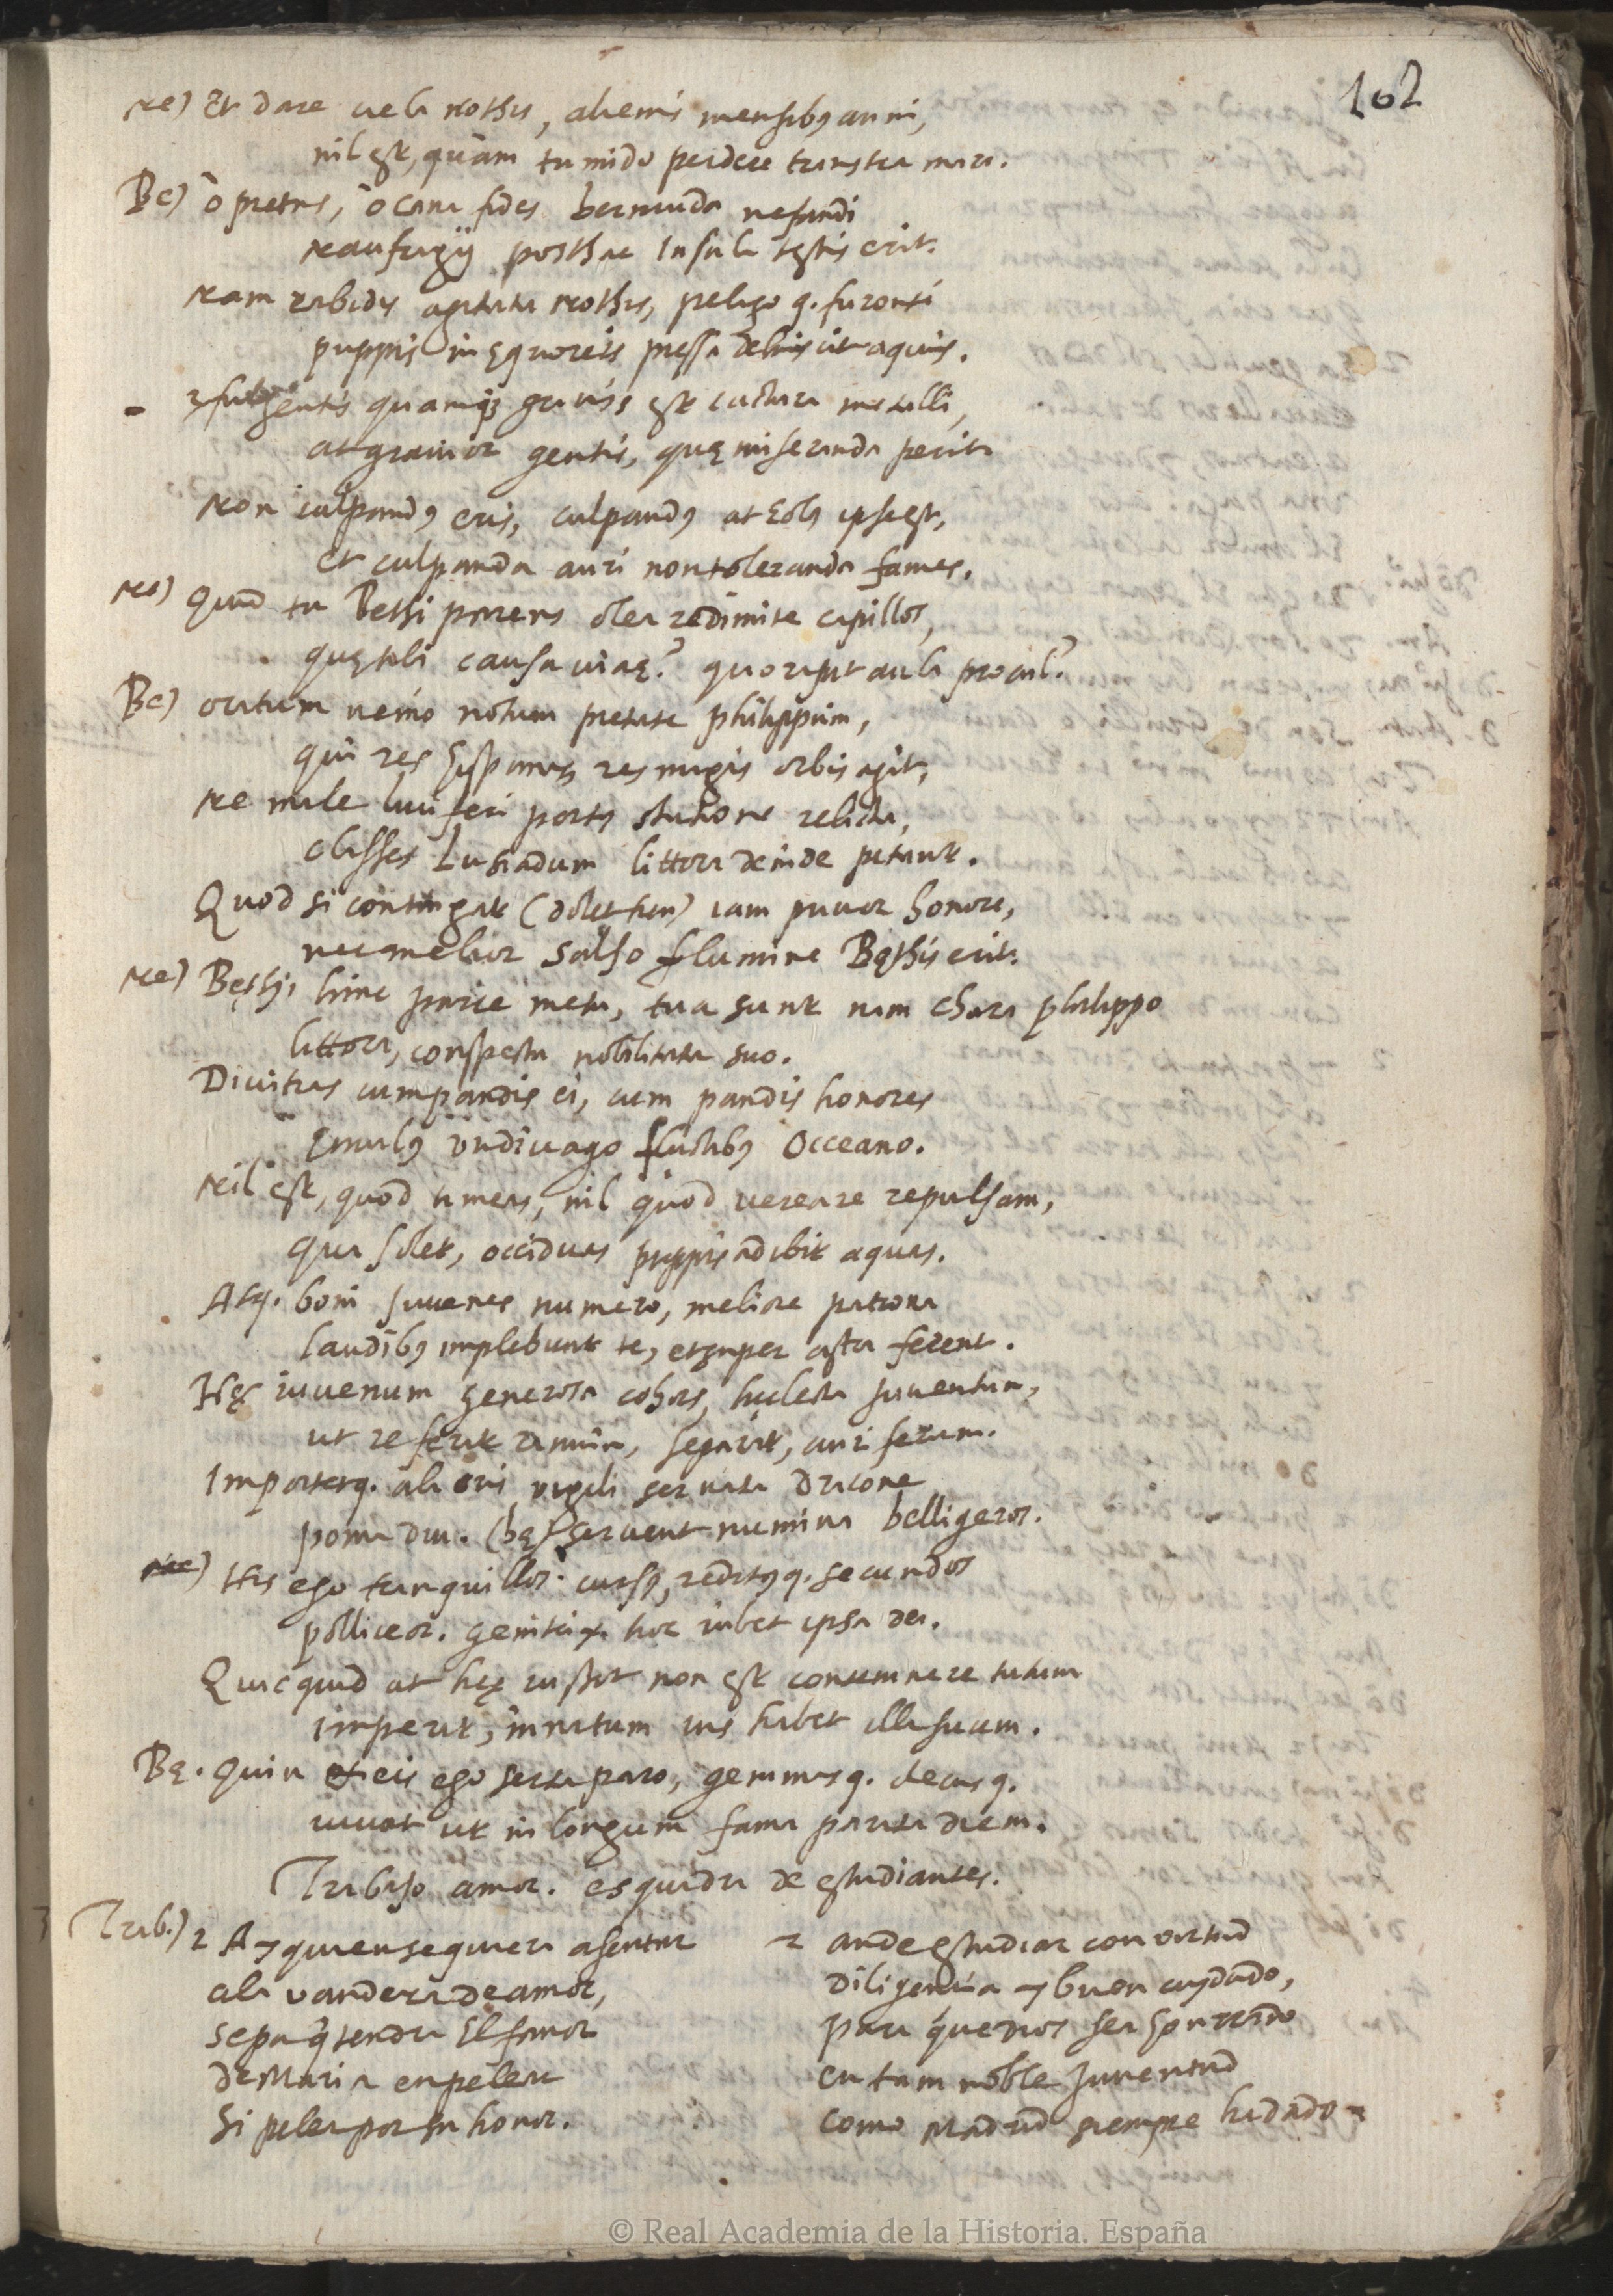 102
Ne) Et dare vela Nothis, alienis mensibꝰ anni,
nil est, quàm tumido perdere transtra mari.
Be) ô pietas, ô cana fides bermuda nefandi
Naufragij posthac Insula testis erit.
Nam rabidis agitata Nothis, pelago q. furenti
puppis in ęquoreis pressa dehiscit aquis.
fulgentis quamuis grauis est iactura metalli,
at grauior gentis, quę miseranda perit
Non culpandꝰ eris, culpandꝰ at Eolꝰ ipse est,
et culpanda auri non toleranda fames.
Ne) Quid tu Bethi parens olea redimite capillos,
quę tibi causa uiae? quo rapit aula procul?
Be) oratum uenio notum pietate philippum,
qui res Hispanas, res magis orbis agit,
Ne male luciferi portꝰ statione relicta,
classes Lusiadum littora deinde petant.
Quod si contingat (dolet heu) iam priuor honore,
nec melior salso flumine Bęthis erit.
Ne) Bęthi, hinc parce metu, tua sunt nam chara philippo
littora, conspectu nobilitata suo.
Diuitias cum pandis ei, cum pandis honores
Ęmulꝰ undiuago fluctibꝰ Occeano.
Nil est, quod timeas, nil quod uereare repulsam,
qua solet, occiduas puppis adibit aquas.
Atq. boni Juuenes numero, meliore patrona
laudibꝰ implebunt te, et super astra ferent.
Hęc iuuenum generosa cohors, hęc lecta juuentus,
ut referat ramum, separat, auri ferum.
Importetq. aliis uigili seruata dracone
poma diu. (hęc seruent numina belligeros.
His ego tranquillos cursꝰ, reditꝰq. secundos
polliceor. genitrix hoc iubet ipsa dei.
Quicquid at hęc iussit non est contemnere tutum
imperat, in natum ius habet illa suum.
Bę. Quin et eis ego serta paro, gemmasq. decusq.
uiuat ut in longum fama parata diem.
Trabajo amor. esquadra de estudiantes.
Trab.) 2 Ay quien se quiera asentar
a la vandera de amor,
sepa q̃ tendra El fauor
de Maria en pelear
si pelea por su honor.
2 ande estudiar con virtud
diligencia y buen cuydado,
para que dios sea honrrado
en tam noble Juuentud
como Madrid siempre ha dado
© Real Academia de la Historia. España